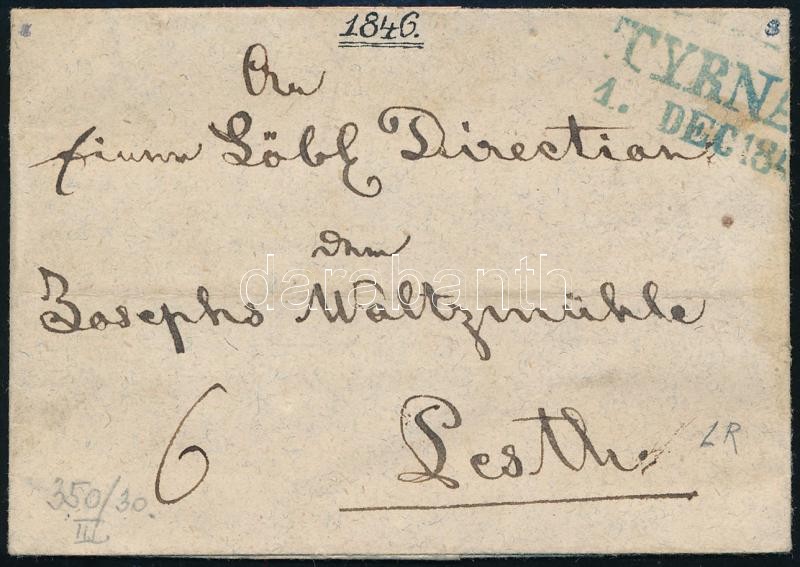 1846.
TYRNA
1. DEC 184
An
Einen Löbl Direction
den
Josephs Waltzmühle
6
Pesth.
LR
350/30.
III
darabanth